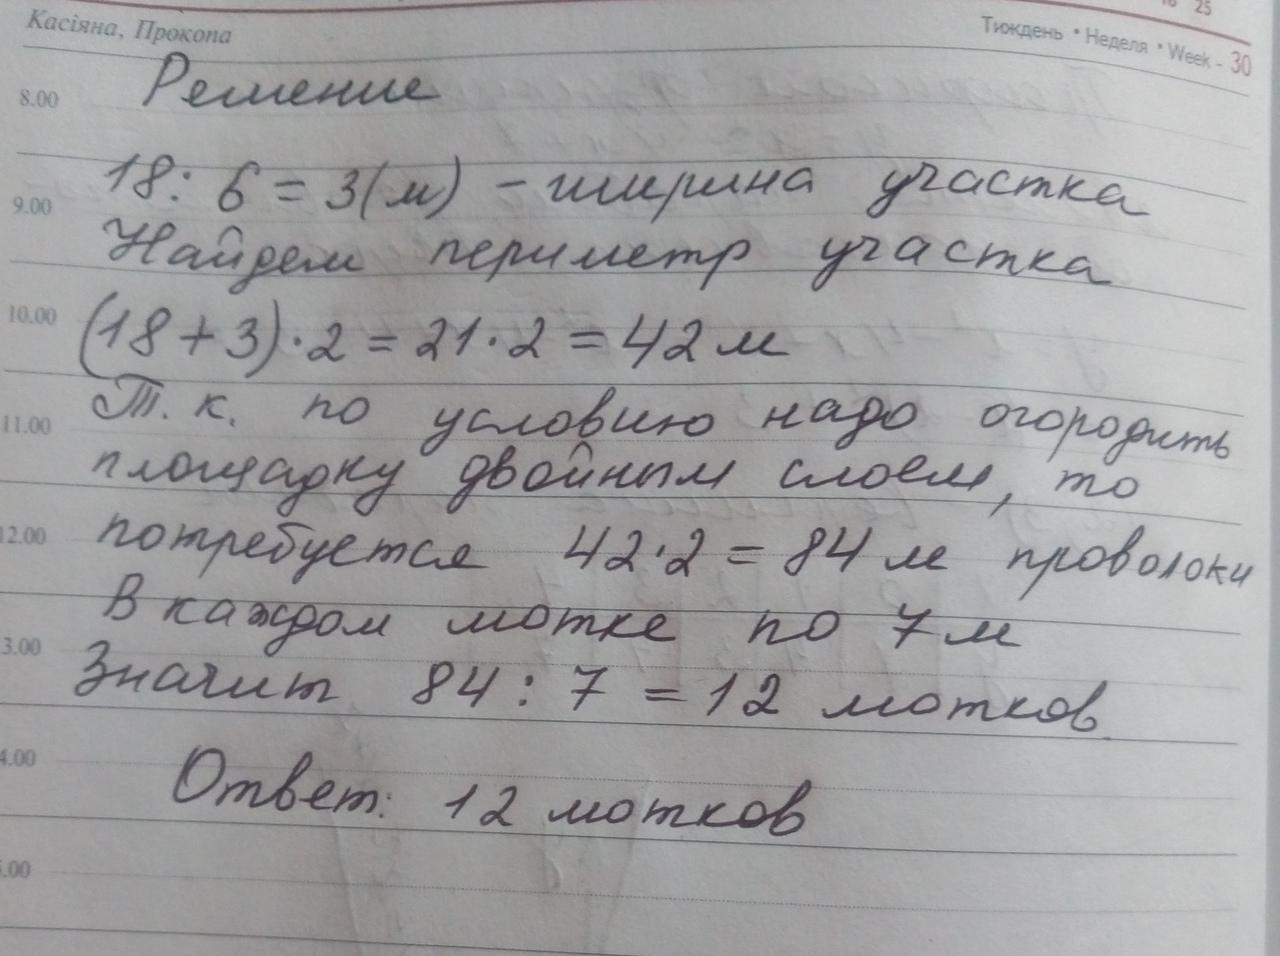 18 25
Касіяна, Прокопа
Тиждень • Неделя • Week - 30
8.00 Решение
18 : 6 = 3(м) - ширина участка
9.00
Найдем периметр участка
10.00 (18 + 3) · 2 = 21 · 2 = 42 м
Т. к. по условию надо огородить
11.00
площадку двойным слоем, то
12.00 потребуется 42 · 2 = 84 м проволоки
В каждом мотке по 7 м
3.00
Значит 84 : 7 = 12 мотков
4.00
Ответ: 12 мотков
5.00